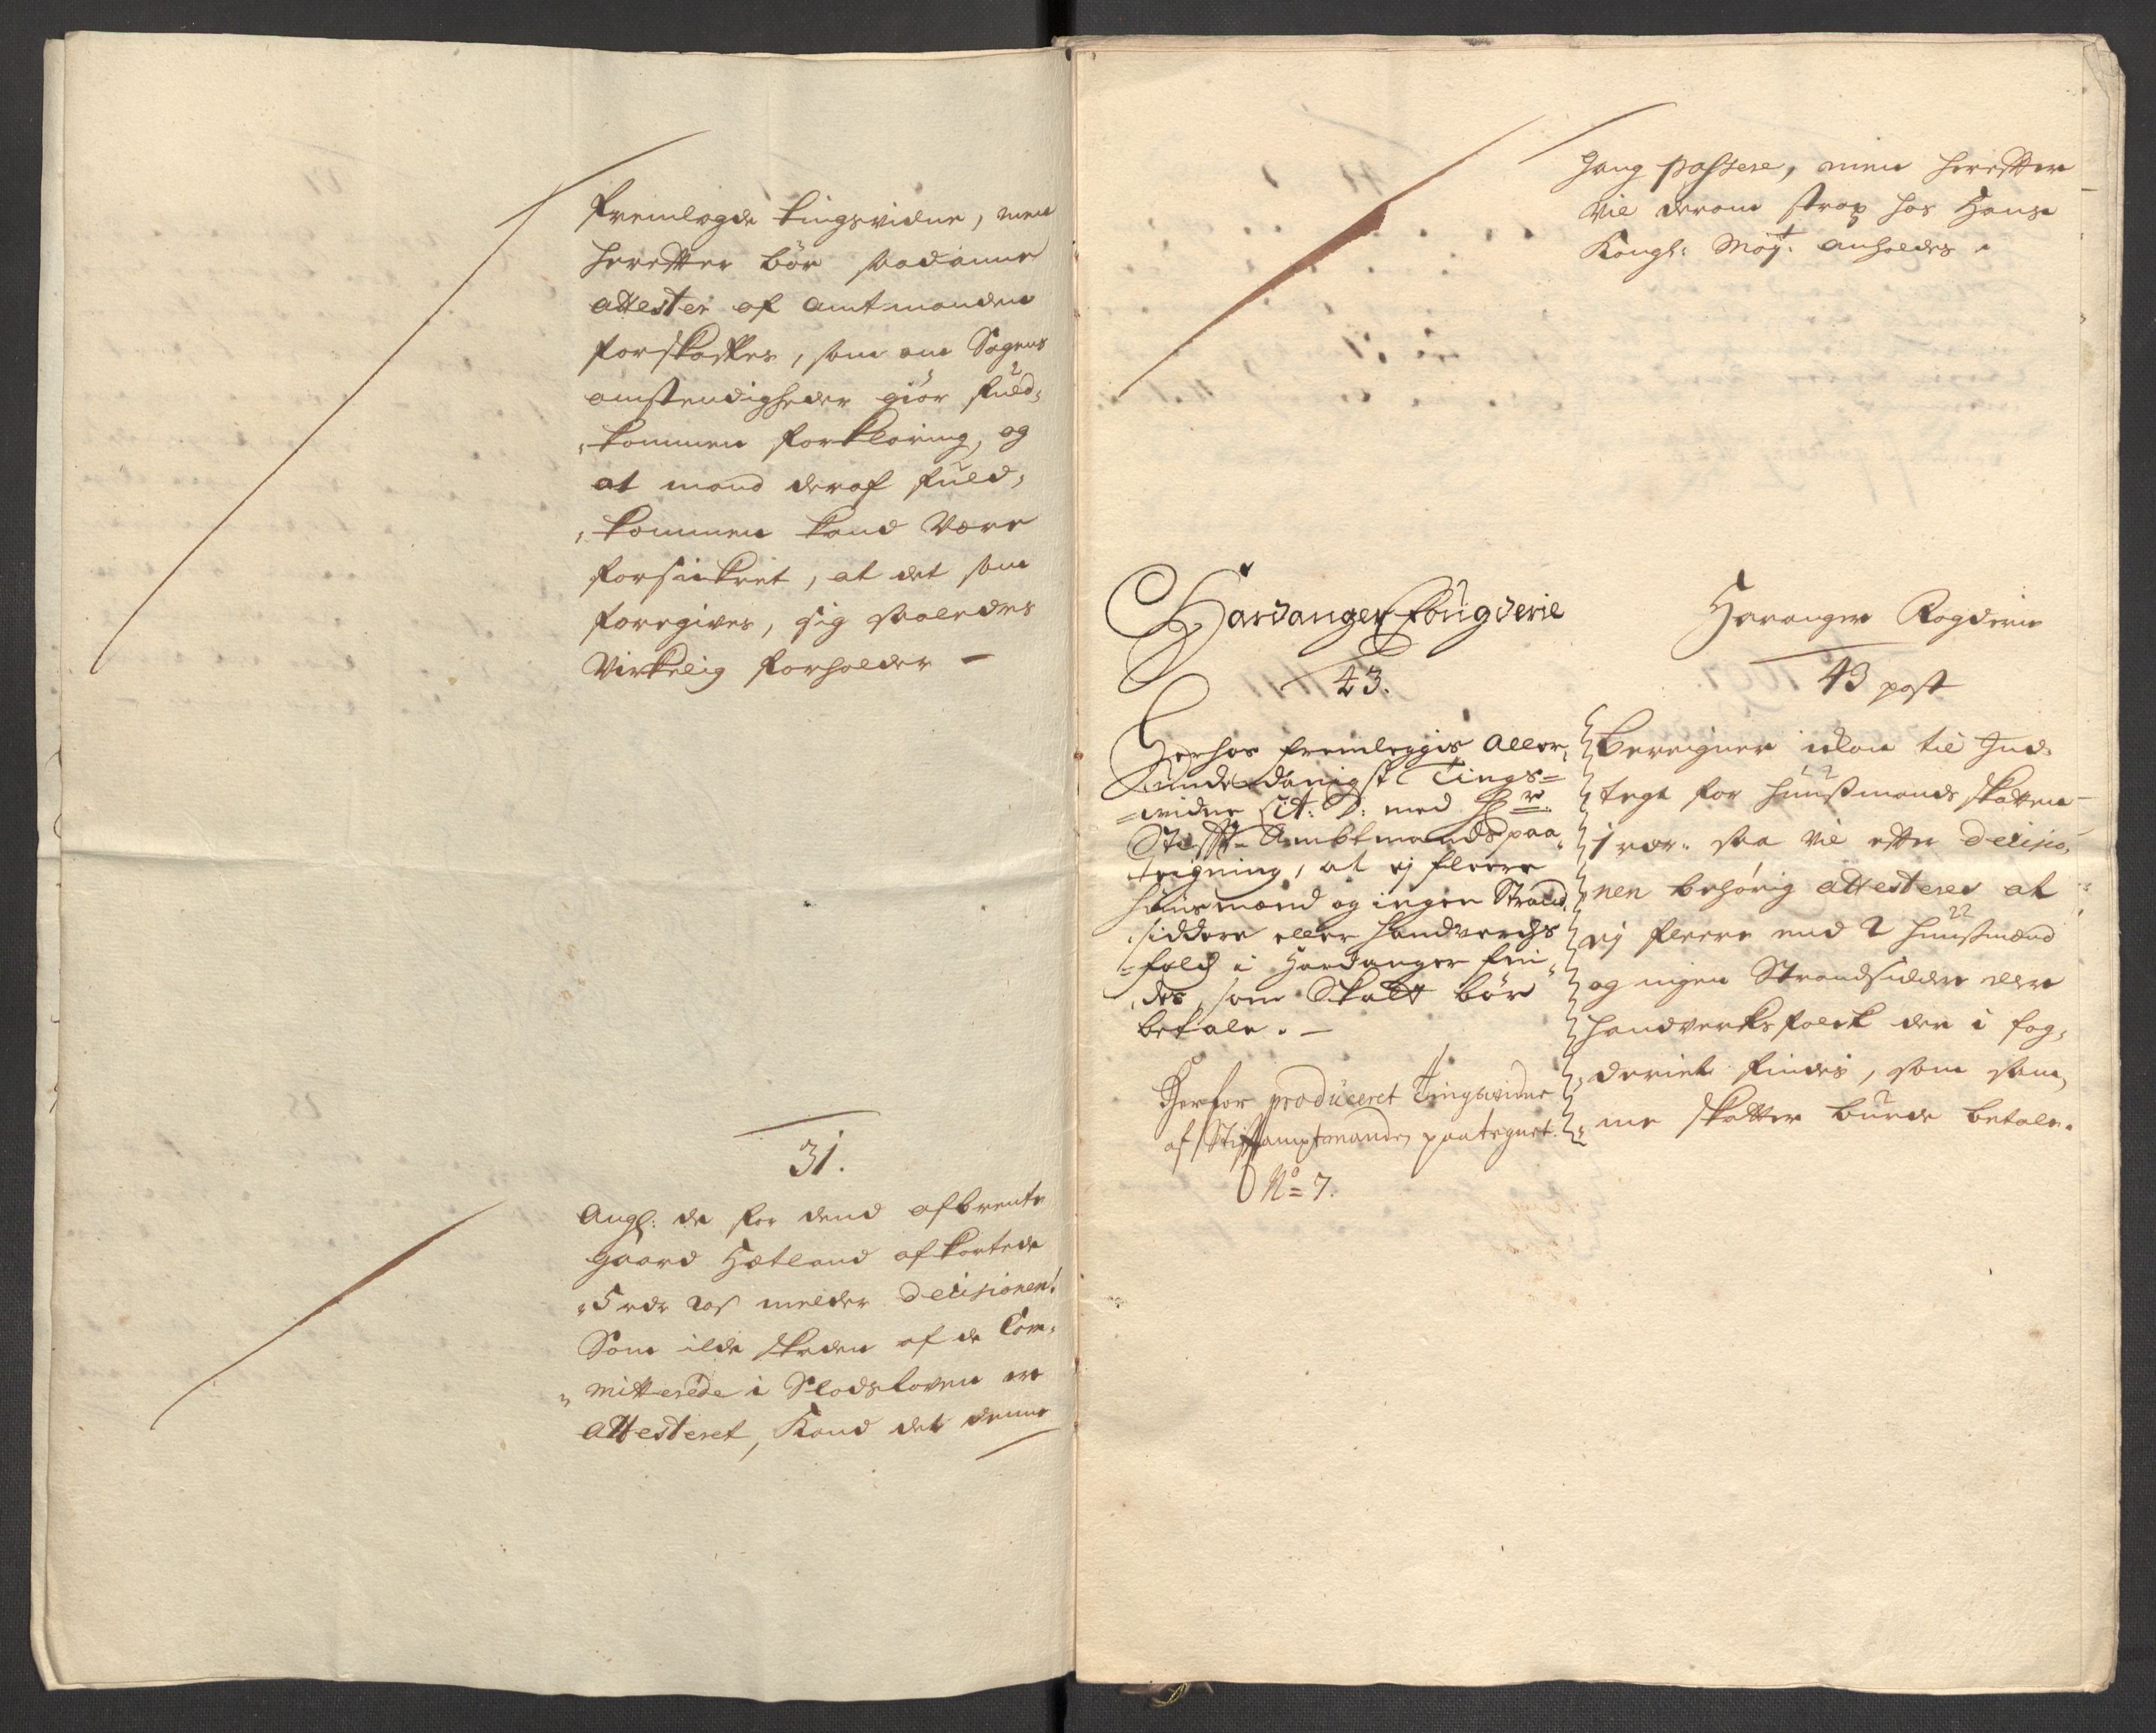 fremlagde tingsvidne, men
herefter bör saadanne
attester af amtmanden
forskaffes, som om Sagens
omstendigheder giör fuld-
kommen forklaring, og
at mand deraf fuld-
kommen kand være
forsickret, at det som
foregives, sig saaledes
Virkelig forholder –
31.
Angl: de for dend afbrente
gaard Hetland afkortede
5 rdr melder decisionen:
Som ilde skaden af de Com-
mitterede i Slodsloven er
attesteret, Kand det denne
gang passere, men herefter
vil derom strax hos Hans
Kongl: May:t anholdes.
Hardanger Fougderie
43.
Herhos fremleggis aller-
underdanigst Tings=
=widne Lit: D: med Hr:
Stifft-Ambtmands paa-
teigning, at ej fleere
huusmænd og ingen Strand-
siddere eller handverchs
=folch i Hardanger fin-
des, som Skatt bör
betale. –
Herfor produceret Tingsvidne
af Stiftamptmanden paategnet.
No= 7.
Haranger Fogderie
43 post
Beregner ickun til Ind-
tegt for huusmands skatten
1 rdr: saa vil efter decisio-
nen behörig attesteres at
ej fleere end 2 huusmænd
og ingen Strandsidder eller
handverksfolck der i fog-
deriet findes, som sam-
me skatter burde betale.